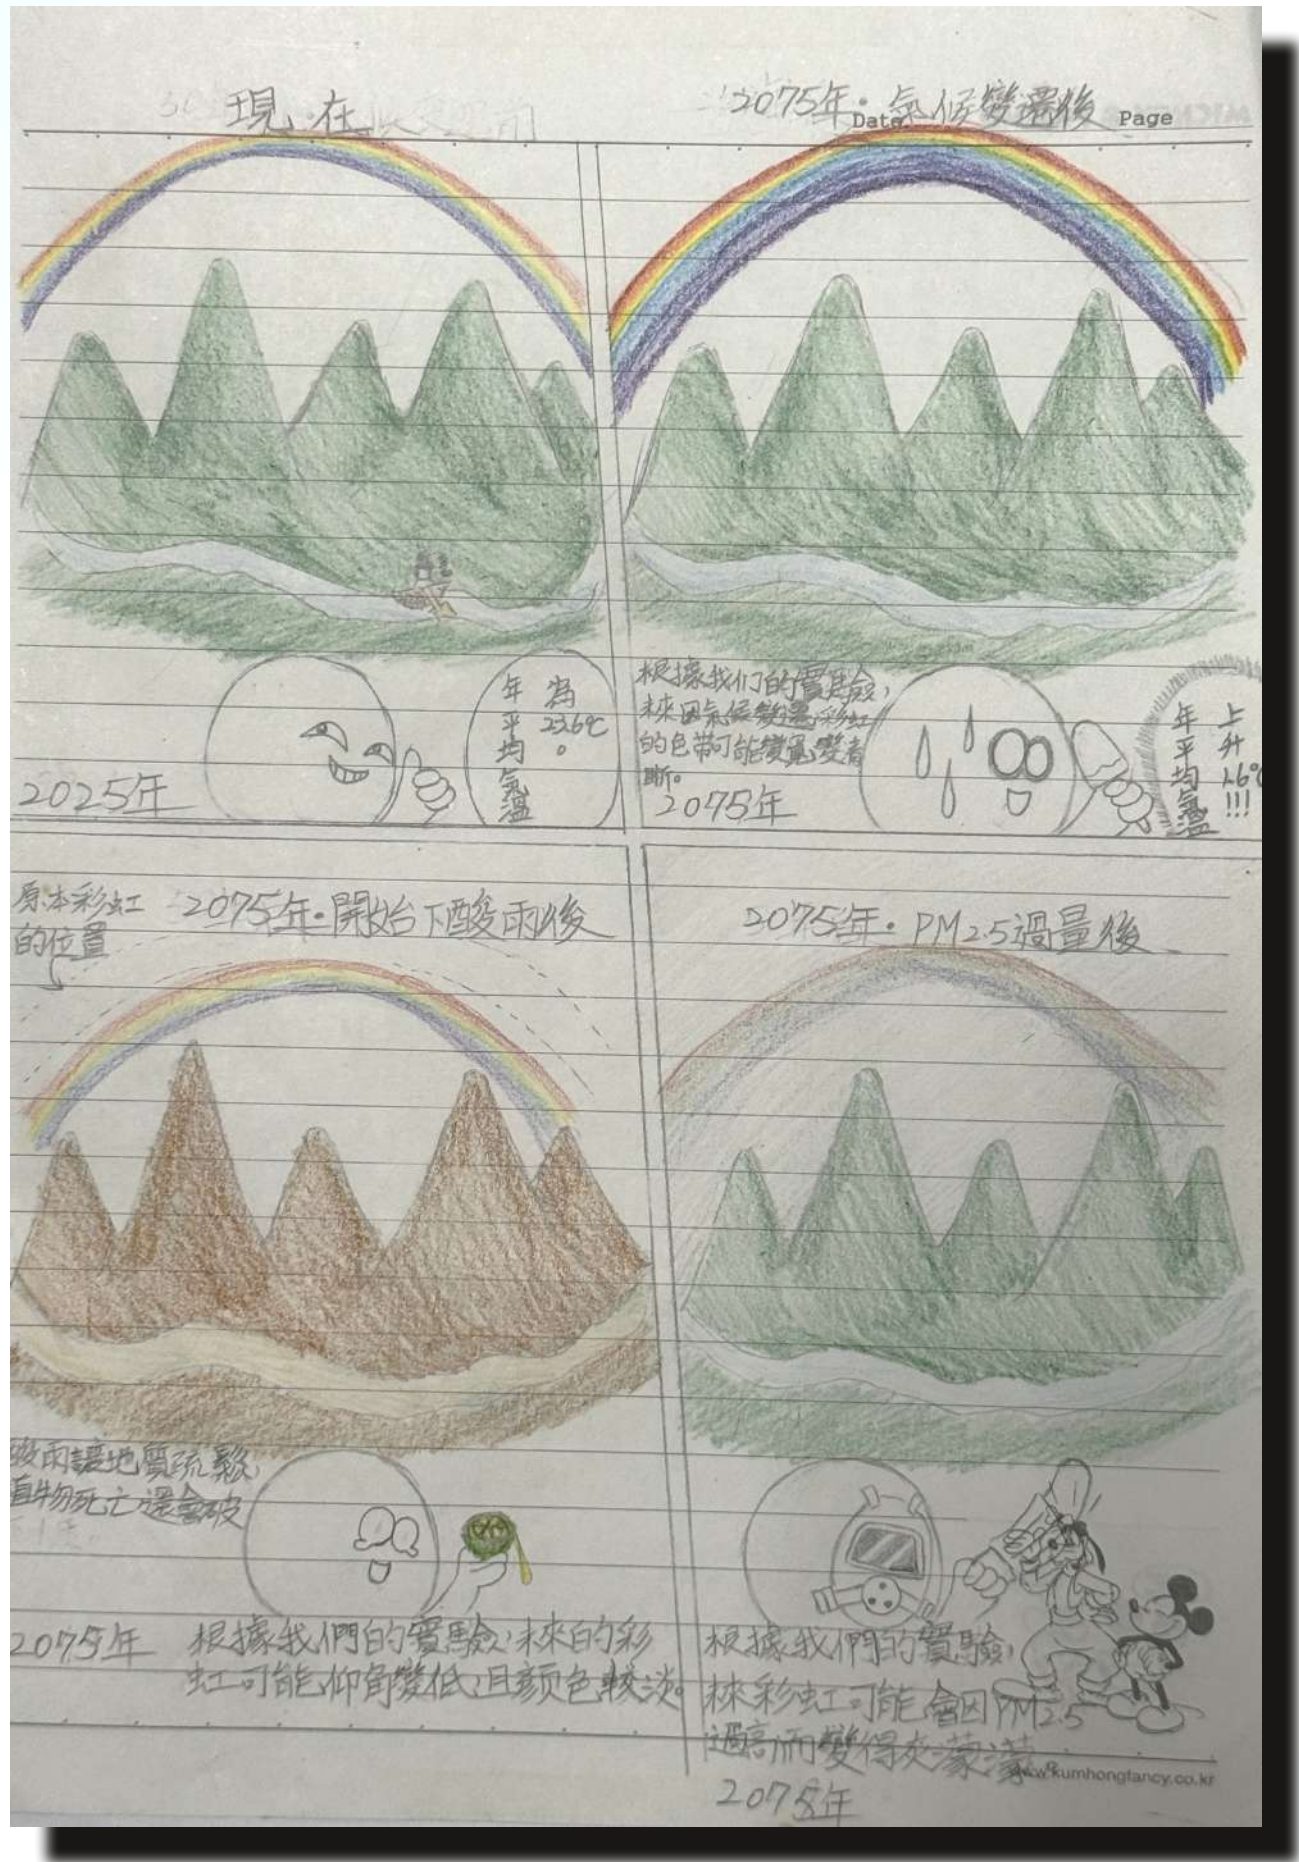 現在
2075年・氣候變遷後
Date
Page
年平均氣溫
為
23.6℃。
2025年
根據我们的實驗,
未來因氣候變遷彩虹
的色帶可能變寬變清
晰。
2075年
年平均氣溫
上升
1.6°C
!!!
原本彩虹
的位置
2075年・開始下酸雨後
2075年・PM2.5過量後
酸雨讓地質疏鬆,
植物死亡還會破
2075年
根據我們的實驗,未來的彩
虹可能仰角變低,且顏色較淡。
根據我們的實驗,
未來彩虹可能會因PM2.5
過高而變得灰濛濛。
www.kumhongfancy.co.kr
2075年